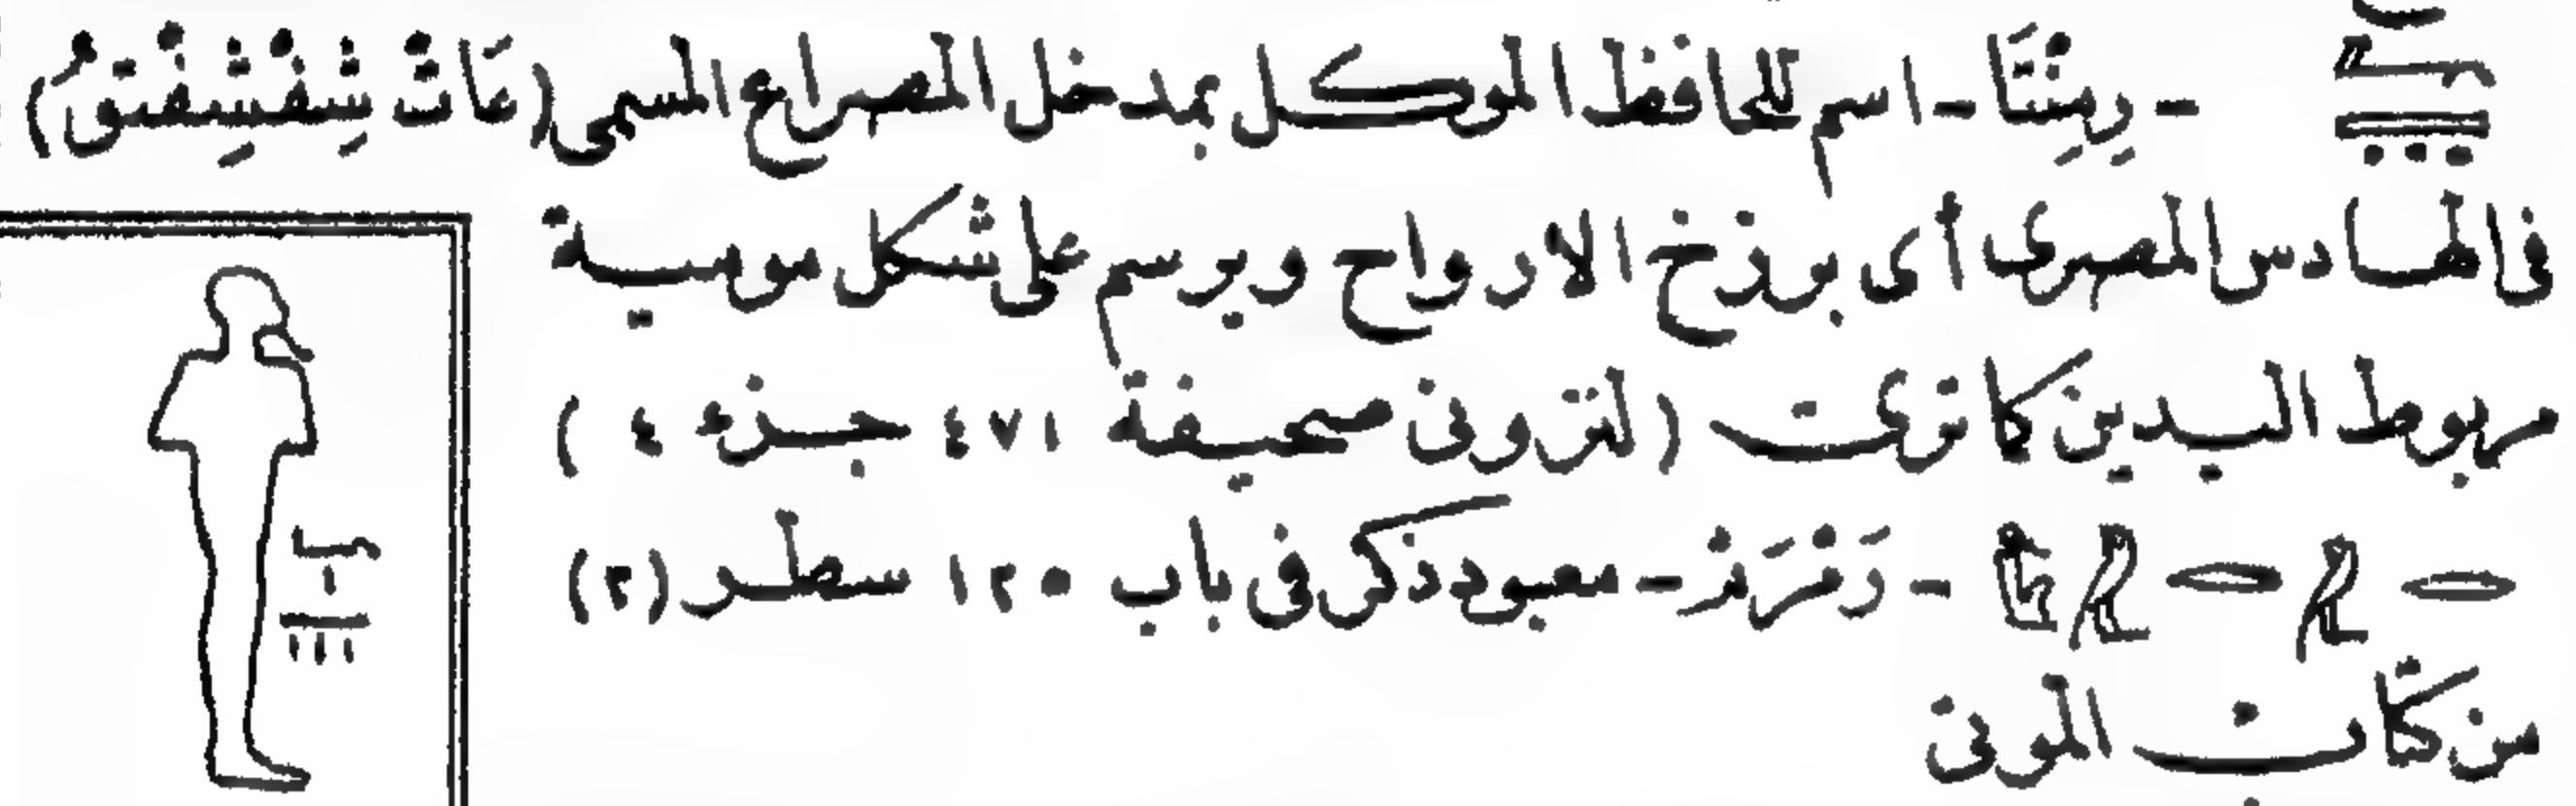 - رِمِنْتَا - اسم للحافظ الموكل بمدخل المصراع المسمى (عَاتْ شِفْشِفْتقُ)
فى الهادس المصرى أى برزخ الارواح ويرسم على شكل مومية
مربوط اليدين كما ترى (لنزونى صحيفة ٤٧١ جزء ٤ )
- معبود ذكر فى باب ١٢٥ سطر (٢)
من كتاب الموتى